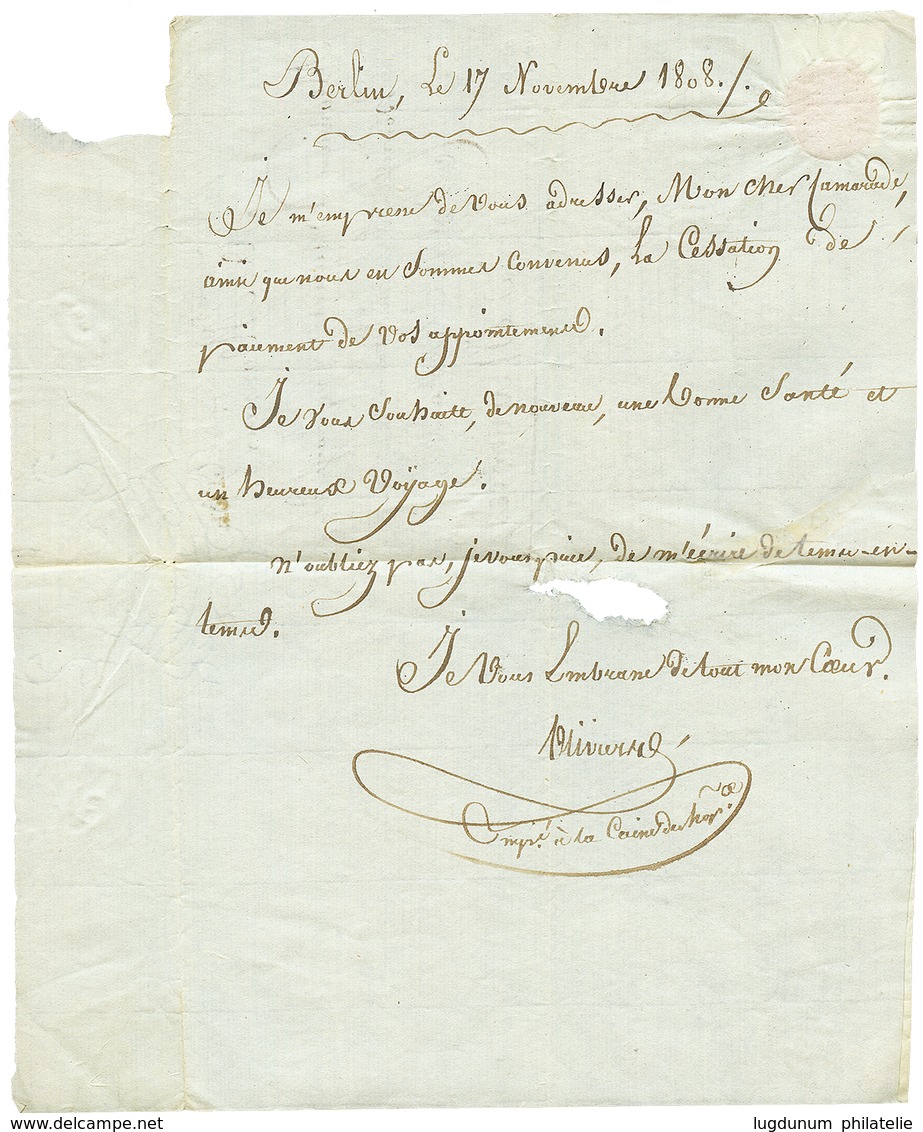 Berlin, Le 17 Novembre 1808./.
Je m'empresse de vous adresser, Mon cher Camarade,
ainsi que nous en sommes convenus, La Cessation de
paiement de vos appointements.
Je vous souhaite, de nouveau, une bonne santé et
un heureux voyage.
N'oubliez pas, je vous prie, de m'écrire de tems-en-
tems.
Je vous Embrasse de tout mon Coeur.
Empé. à la Caisse des
lugdunum philatelie